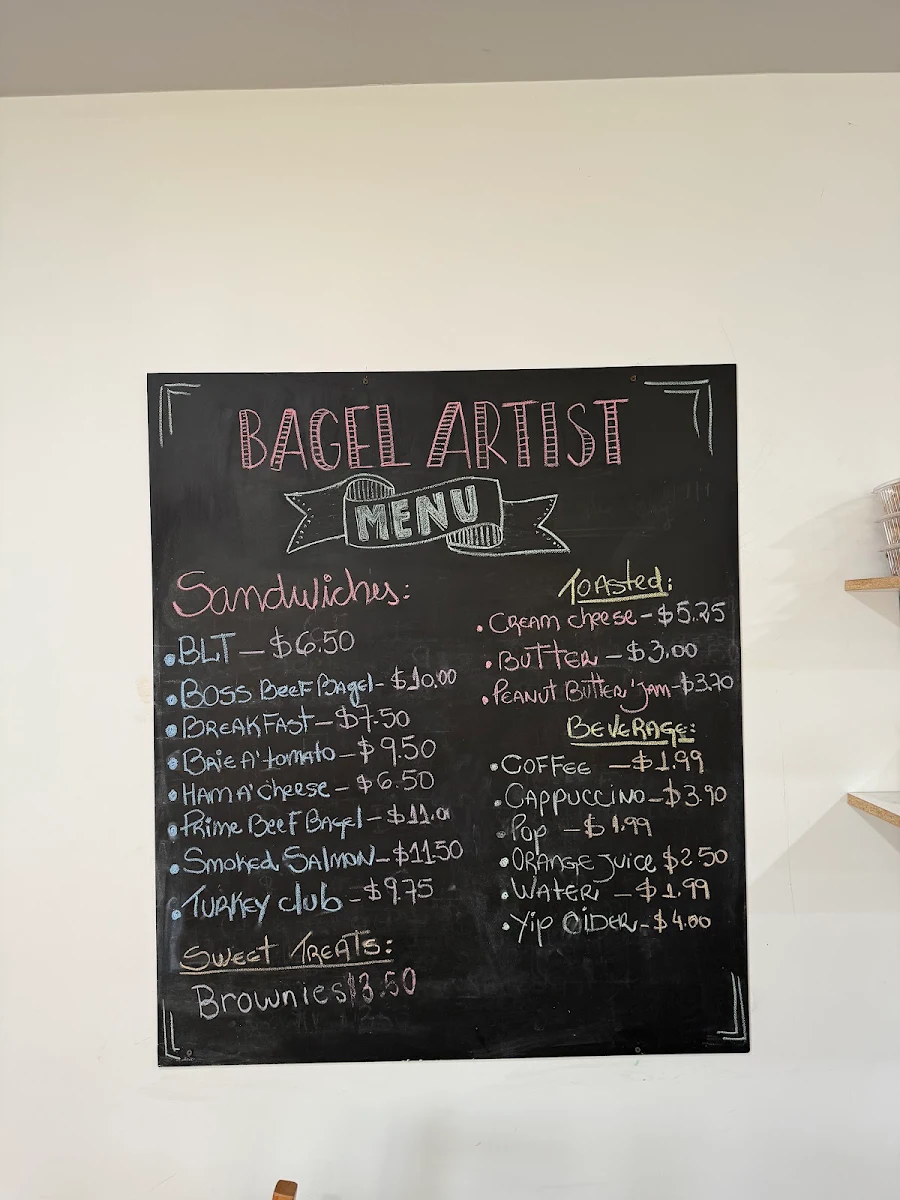 BAGEL ARTIST
MENU
Sandwiches:
• BLT – $6.50
• Boss Beef Bagel - $10.00
• BREAKFAST – $7.50
• Brie A' tomato – $9.50
• HAM A' cheese – $6.50
• Prime Beef Bagel - $11.0
• Smoked SALMON – $11.50
• TURKEY club – $9.75
SWEET TREATS:
Brownies $3.50
TOASTED:
• CREAM cheese – $5.25
• BUTTER – $3.00
• PEANUT BUTTER 'Jam – $3.70
BEVERAGE:
• COFFEE – $1.99
• CAPPUCCINO – $3.90
• Pop – $1.99
• ORANGE JUICE $2.50
• WATER – $1.99
• Yip CIDER – $4.00